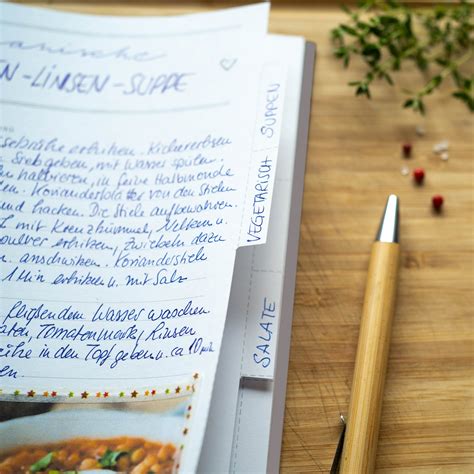 anische
EN-LINSEN-SUPPE
sebrühe erhitzen. Kichererbsen
Sieb geben, mit Wasser spülen.
halbieren, in feine Halbmonde
n. Korianderblätter von den Stielen
und hacken. Die Stiele aufbewahren.
l mit Kreuzkümmel, Nelken u.
pulver erhitzen, Zwiebeln dazu
n. anschwitzen. Korianderstiele
1 Min erhitzen u. mit Salz
fließendem Wasser waschen
aten, Tomatenmark, Linsen
ühe in den Topf geben u. ca 10 min
en.
SUPPEN
VEGETARISCH
SALATE